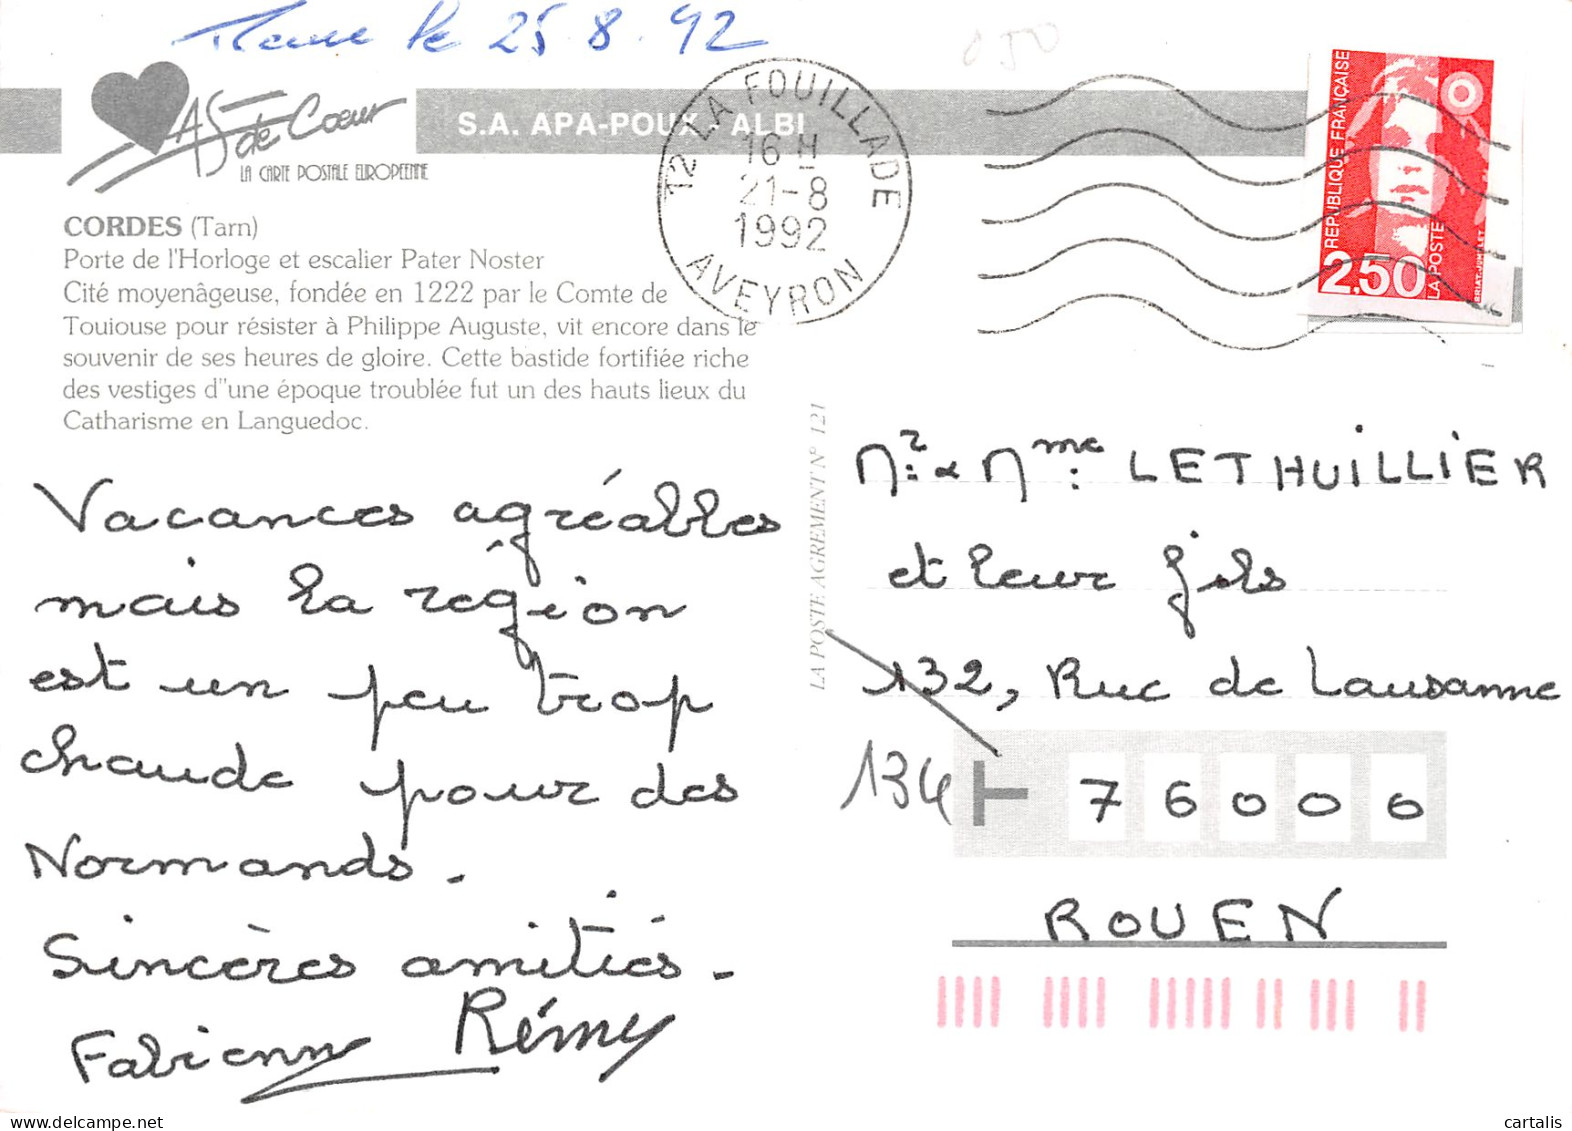 le 25.8.92
AS de Cœur
LA CARTE POSTALE EUROPEENNE
S.A. APA-POUX - ALBI
12 LA FOUILLADE
16 H
21-8
1992
AVEYRON
REPUBLIQUE FRANÇAISE
2,50
LA POSTE
BRIAT-JUMELET
CORDES (Tarn)
Porte de l'Horloge et escalier Pater Noster
Cité moyenâgeuse, fondée en 1222 par le Comte de
Touiouse pour résister à Philippe Auguste, vit encore dans le
souvenir de ses heures de gloire. Cette bastide fortifiée riche
des vestiges d"une époque troublée fut un des hauts lieux du
Catharisme en Languedoc.
Vacances agréables
mais la région
est un peu trop
chaude pour des
Normands.
Sincères amitiés.
Fabienne Rémy
LA POSTE AGREMENT N° 121
Mr & Mme LETHUILLIER
et leur fils
132, Rue de Lausanne
134
76000
ROUEN
cartalis